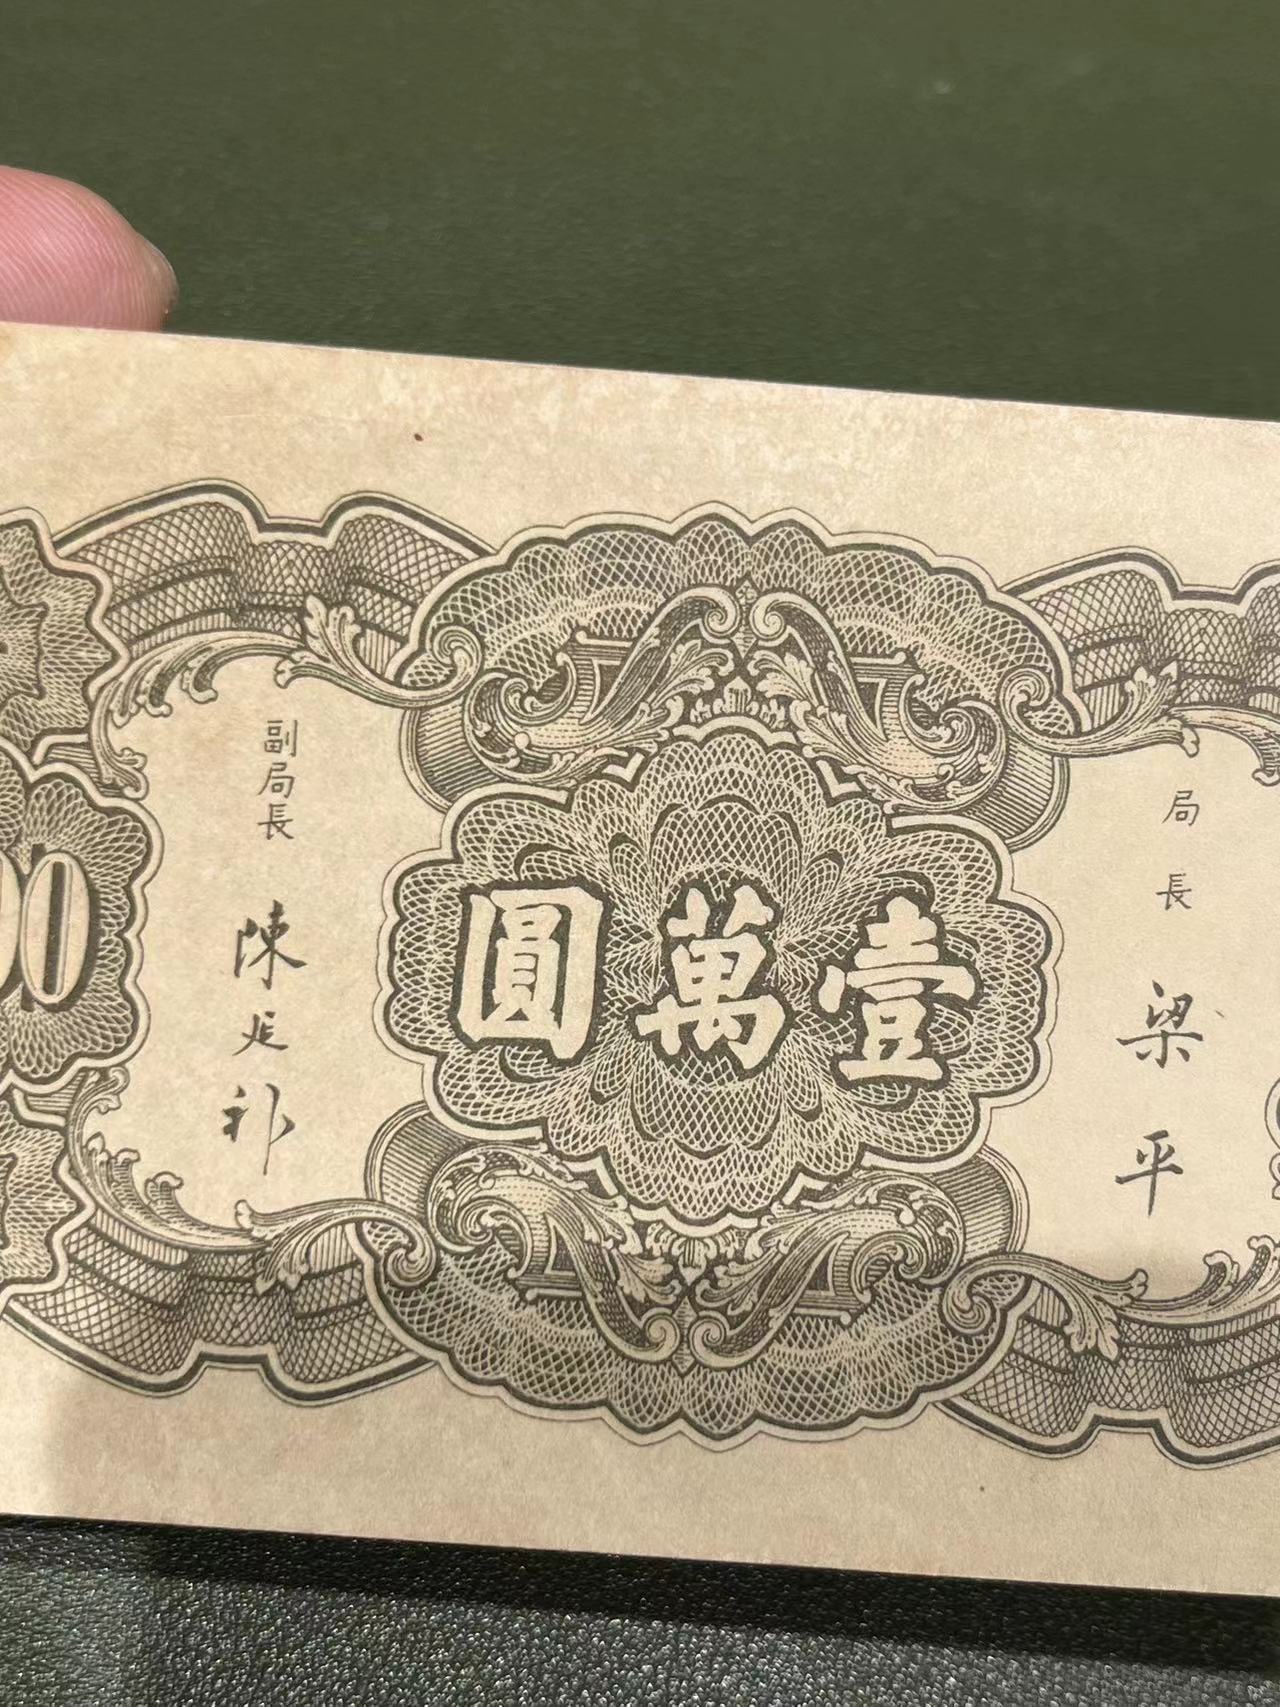 局長 梁平
壹萬圓
副局長 陳延祚
00